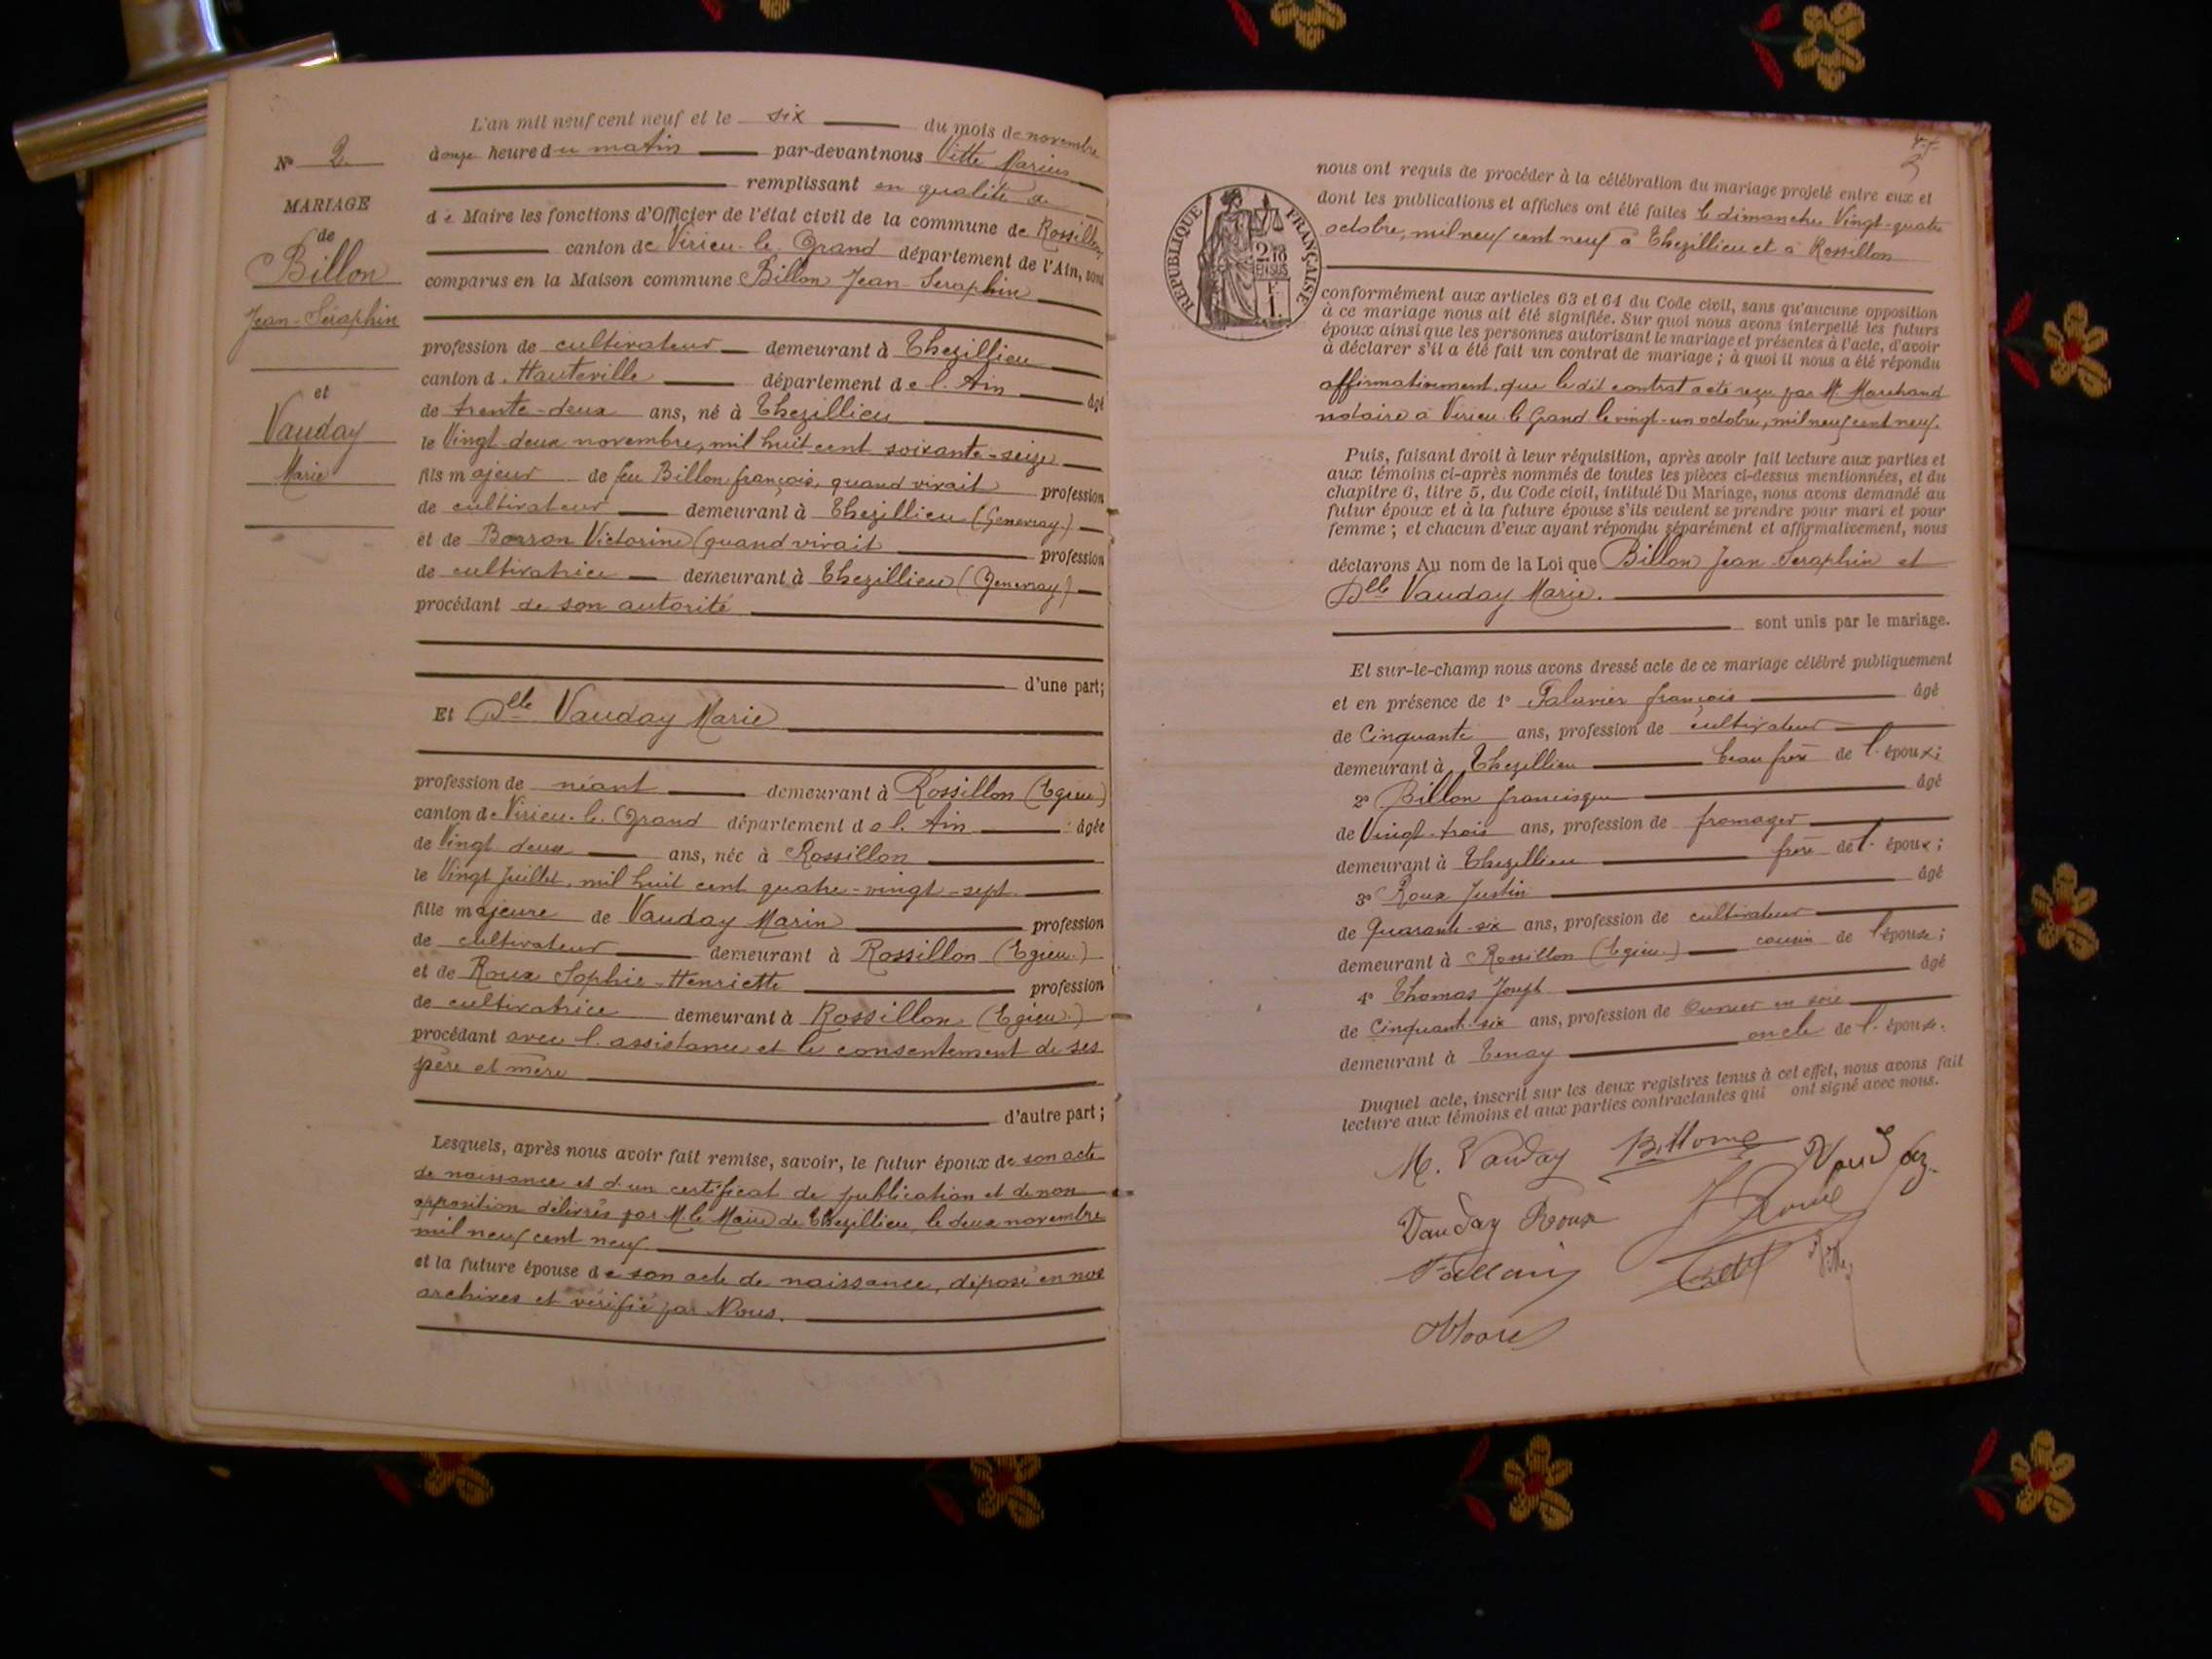 N° 2
MARIAGE
de
Billon
Jean-Séraphin
et
Vauday
Marie
L'an mil neuf cent neuf et le six du mois de novembre
à onze heure du matin par-devant nous Vitte Marius
remplissant en qualité de
de Maire les fonctions d'Officier de l'état civil de la commune de Rossillon
canton de Virieu-le-Grand département de l'Ain, sont
comparus en la Maison commune Billon Jean-Seraphin
profession de cultivateur demeurant à Thezillieu
canton d. Hauteville département de l. Ain âgé
de trente-deux ans, né à Thezillieu
le Vingt-deux novembre, mil huit cent soixante-seize
fils majeur de feu Billon françois, quand vivait profession
de cultivateur demeurant à Thezillieu (Genevray)
et de Borron Victorine (quand vivait profession
de cultivatrice demeurant à Thezillieu (Genevray)
procédant de son autorité
d'une part;
Et Dlle Vauday Marie
profession de néant demeurant à Rossillon (Egieu)
canton de Virieu-le-Grand département de l. Ain âgée
de Vingt deux ans, née à Rossillon
le Vingt Juillet, mil huit cent quatre-vingt-sept
fille majeure de Vauday Marin profession
de cultivateur demeurant à Rossillon (Egieu.)
et de Roux Sophie-Henriette profession
de cultivatrice demeurant à Rossillon (Egieu.)
procédant avec l. assistance et le consentement de ses
père et mère
d'autre part;
Lesquels, après nous avoir fait remise, savoir, le futur époux de son acte
de naissance et d'un certificat de publication et de non
opposition délivrés par M. le Maire de Thezillieu, le deux novembre
mil neuf cent neuf
et la future épouse de son acte de naissance, déposé en nos
archives et vérifié par Nous.
3
RÉPUBLIQUE FRANÇAISE
nous ont requis de procéder à la célébration du mariage projeté entre eux et
dont les publications et affiches ont été faites le dimanche Vingt-quatre
octobre, mil neuf cent neuf à Thezillieu et à Rossillon
conformément aux articles 63 et 64 du Code civil, sans qu'aucune opposition
à ce mariage nous ait été signifiée. Sur quoi nous avons interpellé les futurs
époux ainsi que les personnes autorisant le mariage et présentes à l'acte, d'avoir
à déclarer s'il a été fait un contrat de mariage; à quoi il nous a été répondu
affirmativement, que le dit contrat a été reçu par Me Marchand
notaire à Virieu le Grand le vingt-un octobre, mil neuf cent neuf.
Puis, faisant droit à leur réquisition, après avoir fait lecture aux parties et
aux témoins ci-après nommés de toutes les pièces ci-dessus mentionnées, et du
chapitre 6, titre 5, du Code civil, intitulé Du Mariage, nous avons demandé au
futur époux et à la future épouse s'ils veulent se prendre pour mari et pour
femme; et chacun d'eux ayant répondu séparément et affirmativement, nous
déclarons Au nom de la Loi que Billon Jean-Seraphin et
Dlle Vauday Marie.
sont unis par le mariage.
Et sur-le-champ nous avons dressé acte de ce mariage célébré publiquement
et en présence de 1° françois âgé
de Cinquante ans, profession de cultivateur
demeurant à Thezillieu beau frère de l. époux;
2° Billon francisque âgé
de Vingt-trois ans, profession de fromager
demeurant à Thezillieu frère de l. époux;
3° Roux Justin âgé
de Quarante-six ans, profession de cultivateur
demeurant à Rossillon (Egieu.) cousin de l'épouse;
4° Thomas Joseph âgé
de Cinquante-six ans, profession de Ouvrier en soie
demeurant à Tenay oncle de l. épouse.
Duquel acte, inscrit sur les deux registres tenus à cet effet, nous avons fait
lecture aux témoins et aux parties contractantes qui ont signé avec nous.
M. Vauday Billon Vauday
Vauday Roux J Roux